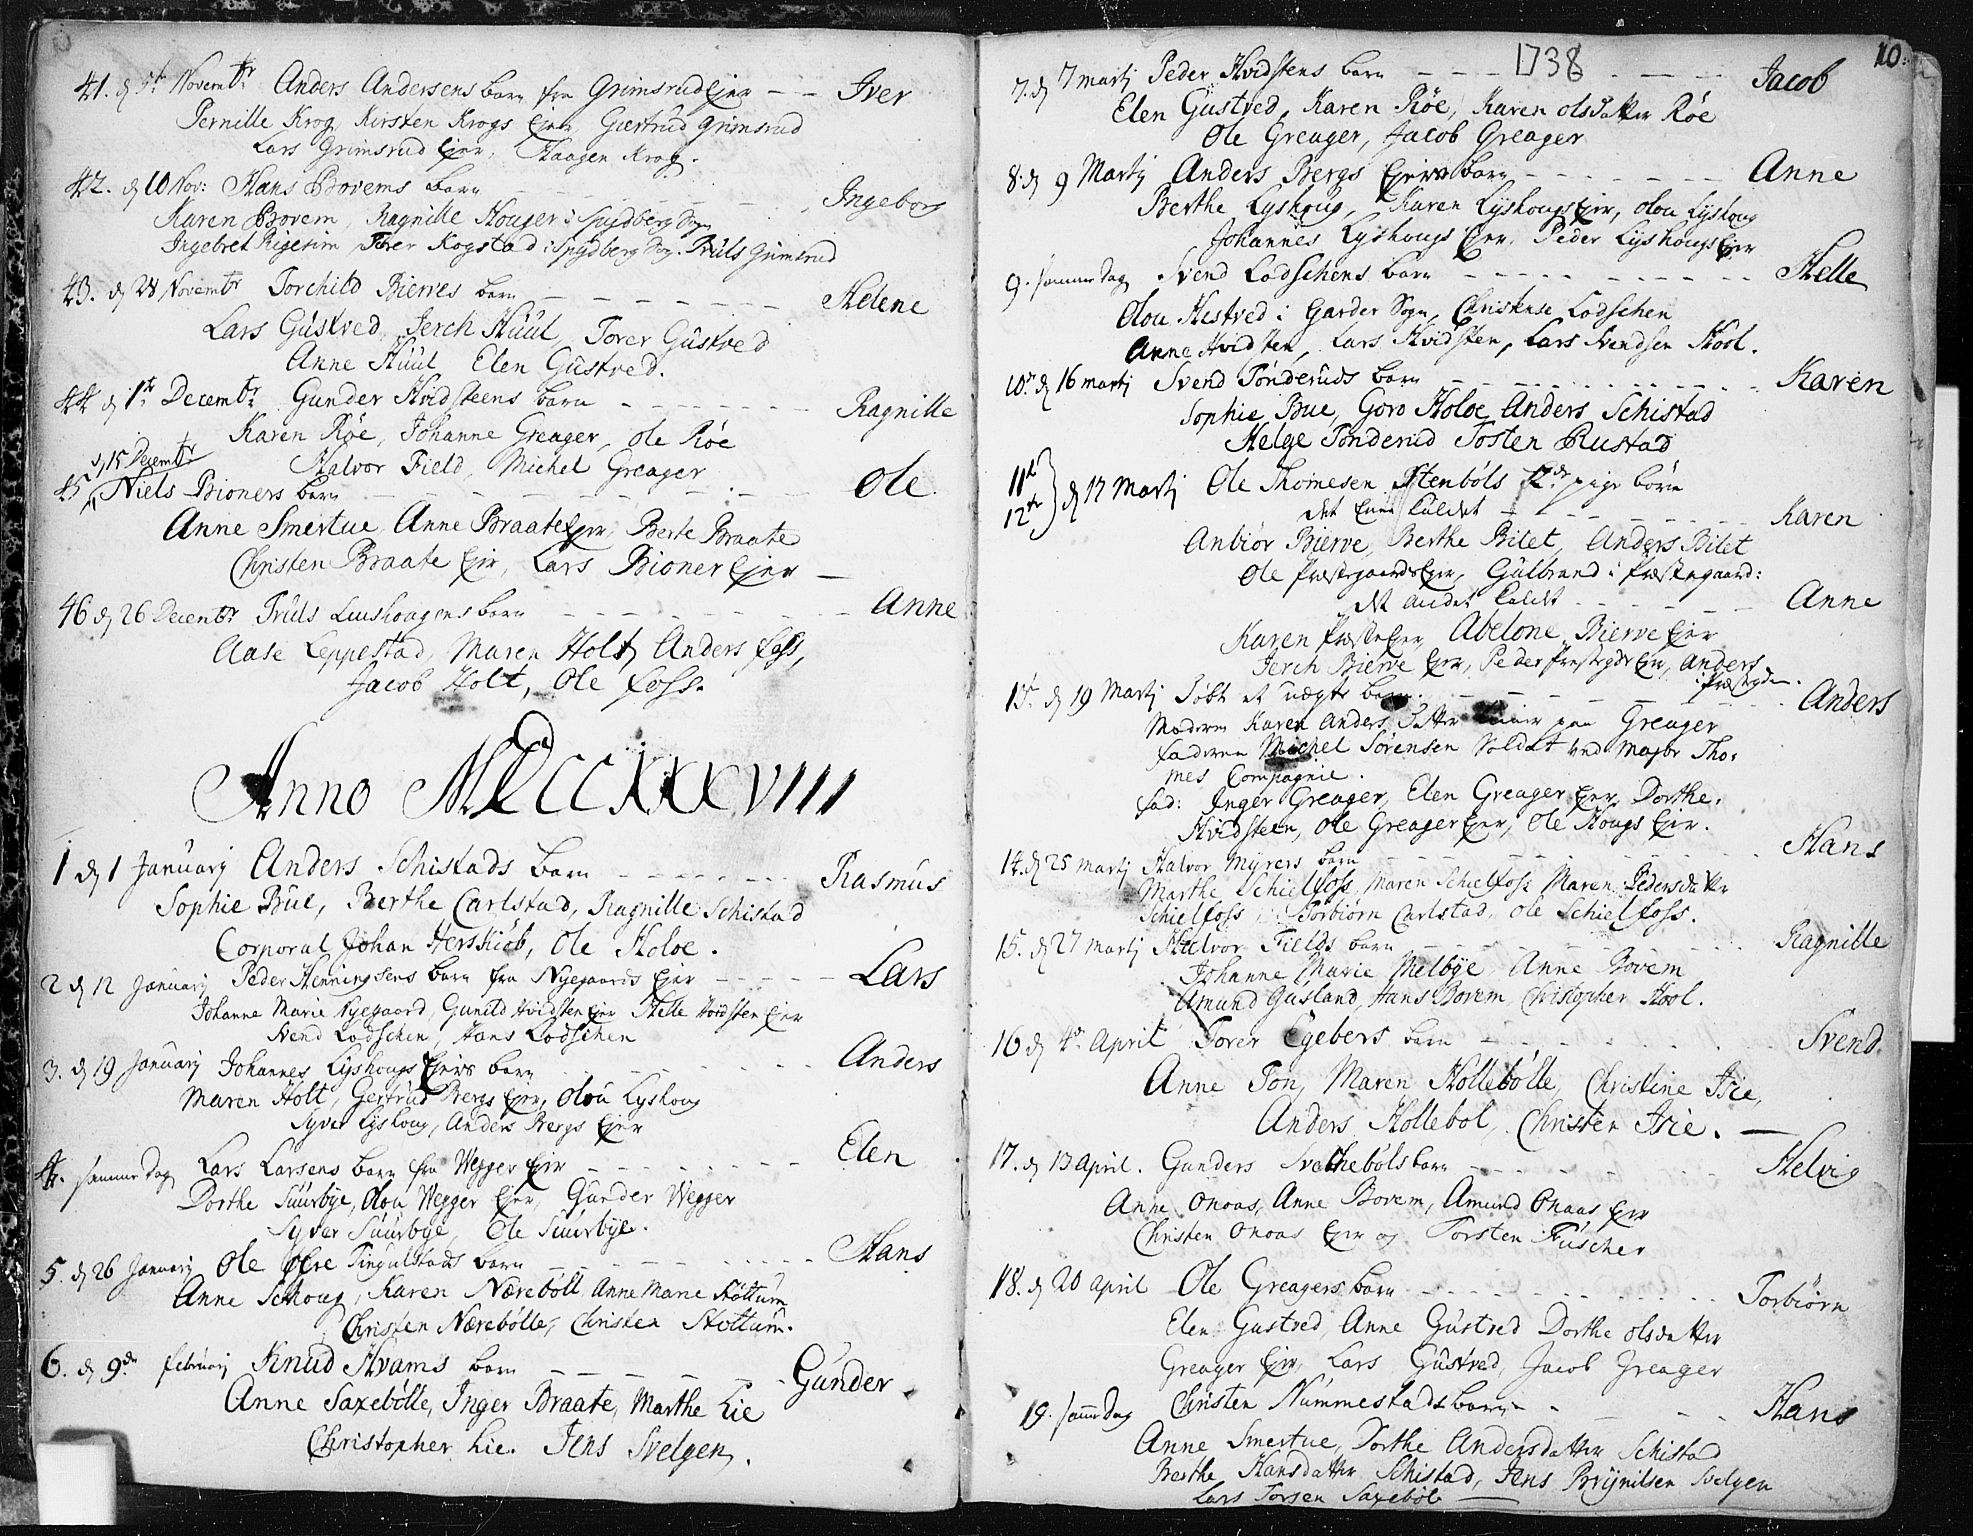 41. d 5t Novembr Anders Andersens barn fra Grimsrud Ejer — — Iver
Pernille Krog, Kirsten Krogs Ejer, Giertrud Grimsrud
Lars Grimsrud Ejer, Haagen Krog.
42. d 10 Nov: Hans Bovems barn Ingeborg
Karen Bovem, Ragnille Houger i Spydberg Sogn
Ingebret Rigerim, Torer Kogstad i Spydberg Sog. Truls Grimsrud
43. d 24 Novembr Torchild Bierves barn — — — Helene
Lars Gústved, Jerch Húúl, Torer Gústved
Anne Húúl Elen Gústved.
44 d 1t Decembr Gunder Hvidsteens barn — — — Ragnille
Karen Røe, Johanne Greager, Ole Røe
Halvor Field, Michel Greager
d 15 Decembr
45 Niels Bioners barn — — — Ole.
Anne Smertue, Anne Braate Ejer, Berte Braate
Christen Braate Ejer, Lars Bioner Ejer —
46 d 26 Decembr Trúls Luushougens barn — — — Anne
Aase Leppestad, Maren Holt, Anders foss,
Jacob Holt, Ole foss.
Anno MDCCXXXVIII
1 d 1 Januarij Anders Schistads barn — — — Rasmus
Sophie Bue, Berthe Carlstad, Ragnille Schistad
Corporal Johan Herskiób, Ole Holoe.
2 d 12 Januarij Peder Henningsens barn fra Nygaards Ejer — — — Lars
Johanne Marie Nygaard, Gunild Hvidsten Ejer Helle Hvidsten Ejer
Svend Lodschen, Hans Lodschen
3. d 19 Januarij Johannes Lyshougs Ejers barn Anders
Maren Holt, Gertrud Bergs Ejer, Olou Lyshoug
Syver Lyshoug, Anders Bergs Ejer
4. samme Dag Lars Larsens barn fra Wegger Ejer — — — Elen
Dorthe Súúrbye, Olou Wegger Ejer, Gunder Wegger
Syver Súúrbye, Ole Súúrbye.
5. d 26 Januarij Ole øfre Tingulstads barn Hans
Anne Schoug, Karen Nærebøll Anne Marie Støttum
Christen Nærebølle, Christen Støttum.
6. d 9de februarij Knud Hvams barn — — — Gúnder
Anne Saxebølle, Inger Braate, Marthe Lie
Christopher Lie. Jens Svelgen.
10.
1738
7. d 7 martj Peder Hvidstens barn — — — Jacob
Elen Gústved, Karen Røe, Karen olsdatter Røe
Ole Greager, Jacob Greager
8. d 9 Martj Anders Bergs Ejers barn — — — Anne
Berthe Lyshoug, Karen Lyshougs Ejer, Olou Lyshoug
Johannes Lyshougs Ejer, Peder Lyshougs Ejer
9. samme Dag Svend Lodschens barn — — — Helle
Olou Hestved i Garder Sogn, Christense Lodschen
Anne Hvidsten, Lars Hvidsten, Lars Svendsen Hool.
10. d 16 martj Svend Tonderuds barn — — — Karen
Sophie Bue, Goro Holoe, Anders Schistad
Helge Tonderud Tosten Rustad
11te
12te } d 17 Martj Ole Thomesen Stenbóls 2de pige børn
det Eene kaldet — — — Karen
Anbiør Bierve, Berthe Bilet, Anders Bilet
Ole Præstegaards Ejer, Gúlbrand i Præstegaard:
det andet kaldet — — — Anne
Karen Præste Ejer, Abelone Bierve Ejer
Jerch Bierve Ejer, Peder Prestegds Ejer, Anders
i Præstegden.
13. d 19 Martj Døbt et uægte barn — — — Anders
Moderen Karen Anders Datter paa Greager
faderen Michel Sørensen Soldat ved Major Tho-
mes Compagnie.
fad: Inger Greager, Elen Greager Ejer, Dorthe,
Hvidsteen, Ole Greager Ejer, Ole Hougs Ejer.
14. d 25 martj Halvor Myrers barn Hans
Marthe Schielfoss, Maren Schielfoss Maren Pedersdatter
Schielfoss, Torbiørn Carlstad, Ole Schielfoss.
15. d 27 martj Halvor Fields barn Ragnille
Johanne Marie Melbye, Anne Bovem
Amund Gusland, Hans Bovem, Christopher Hool.
16 d 4de April Torer Egebers barn — — — Svend.
Anne Ton, Maren Hollebølle, Christine Irie,
Anders Hollebol, Christen Irie. —
17. d 13 April. Gunders Svethebóls barn Helvig
Anne Onoas, Anne Bovem, Amund Onaas Ejer
Christen Onoas Ejer og Torsten Fúscher
18. d 20 april Ole Greagers barn Torbiørn
Elen Gustved, Anne Gústved Dorthe olsdatter
Greager Ejer, Lars Gústved, Jacob Greager
19. samme Dag Christen Nummestads barn — — — Hans
Anne Smertue, Dorthe Andersdatter Schistad
Berthe Hansdatter Schistad, Jens Brynilsen Svelgen
Lars Torsen Saxeból —